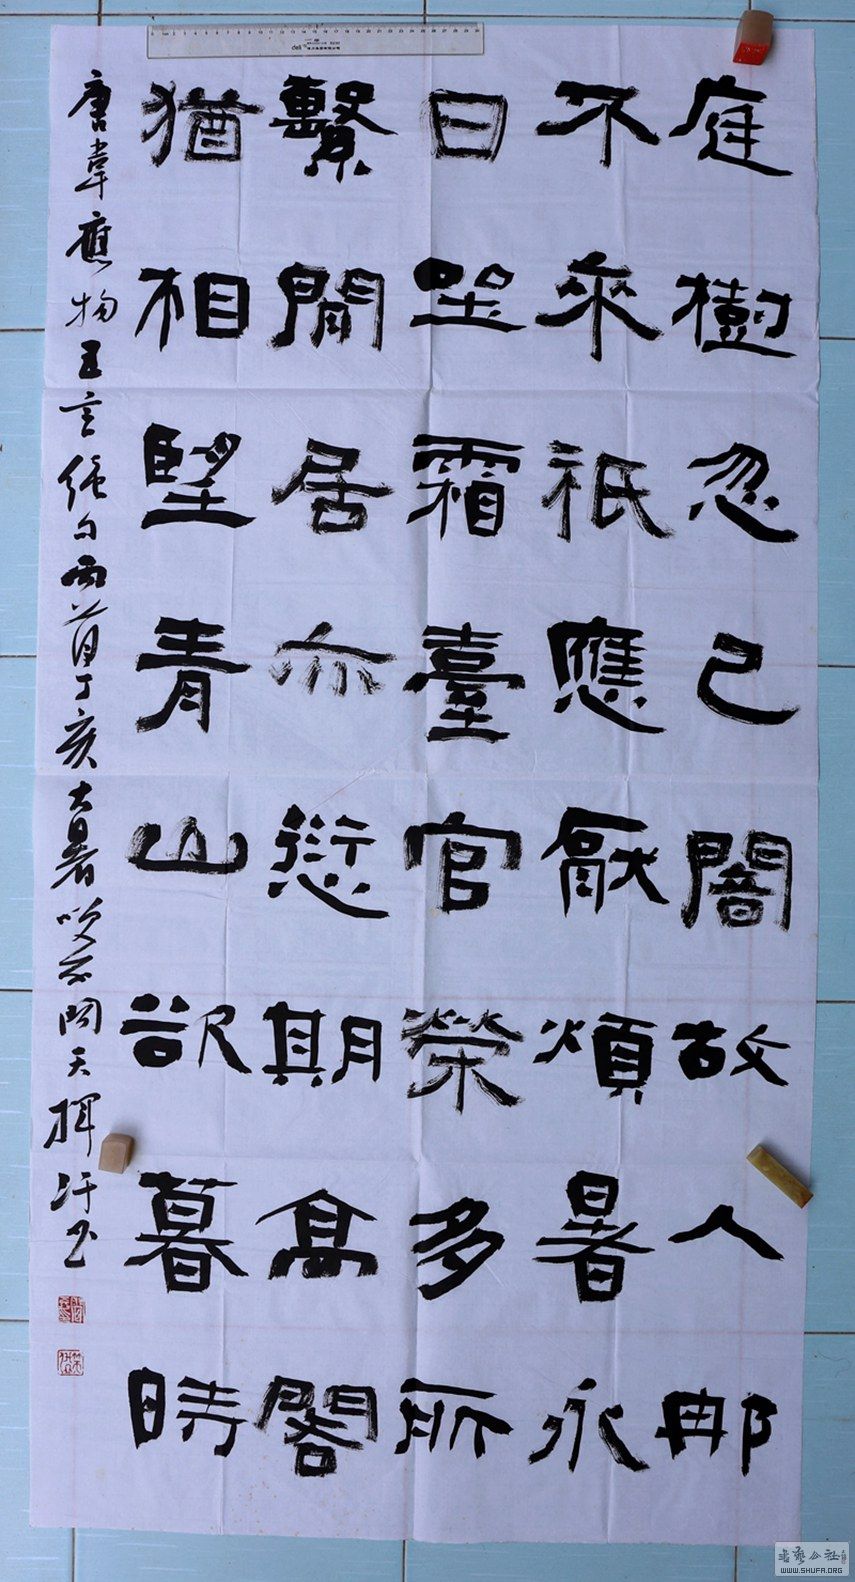 庭樹忽已闇故人那
不來祇應厭煩暑永
日坐霜臺官榮多所
繫閒居亦愆期高閣
猶相望青山欲暮時
唐韋應物五言絕句兩首丁亥大暑吹不開天揮汗書
deli
WWW.SHUFA.ORG